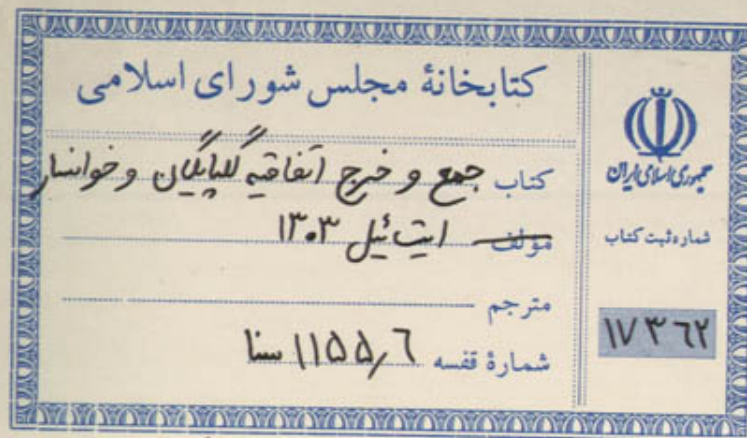 کتابخانهٔ مجلس شورای اسلامی
کتاب جمع و خرج اتفاقیه گلپایگان و خوانسار
مؤلف ایت ئیل ۱۳۰۳
مترجم
شمارهٔ قفسه ۱۱۵۵٫۶ سنا
جمهوری اسلامی ایران
شماره ثبت کتاب
۱۷۳۶۲